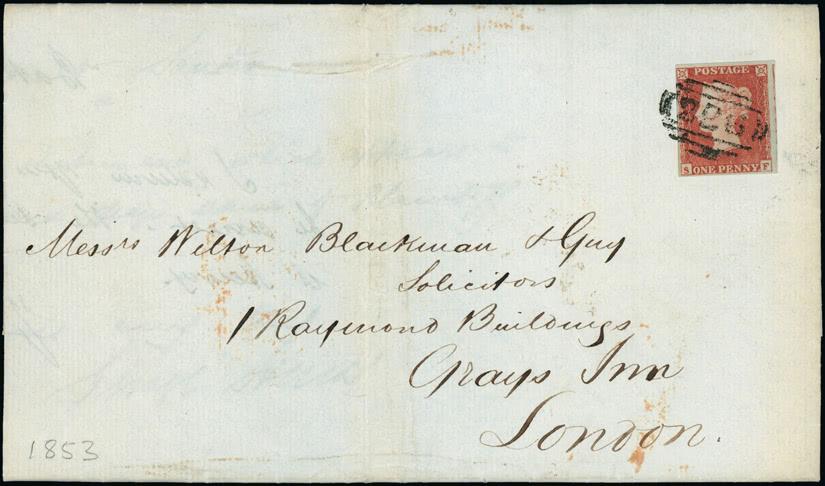 POSTAGE
S ONE PENNY F
Messrs Wilton Blackman & Guy
Solicitors
1 Raymond Buildings
Grays Inn
London.
1853